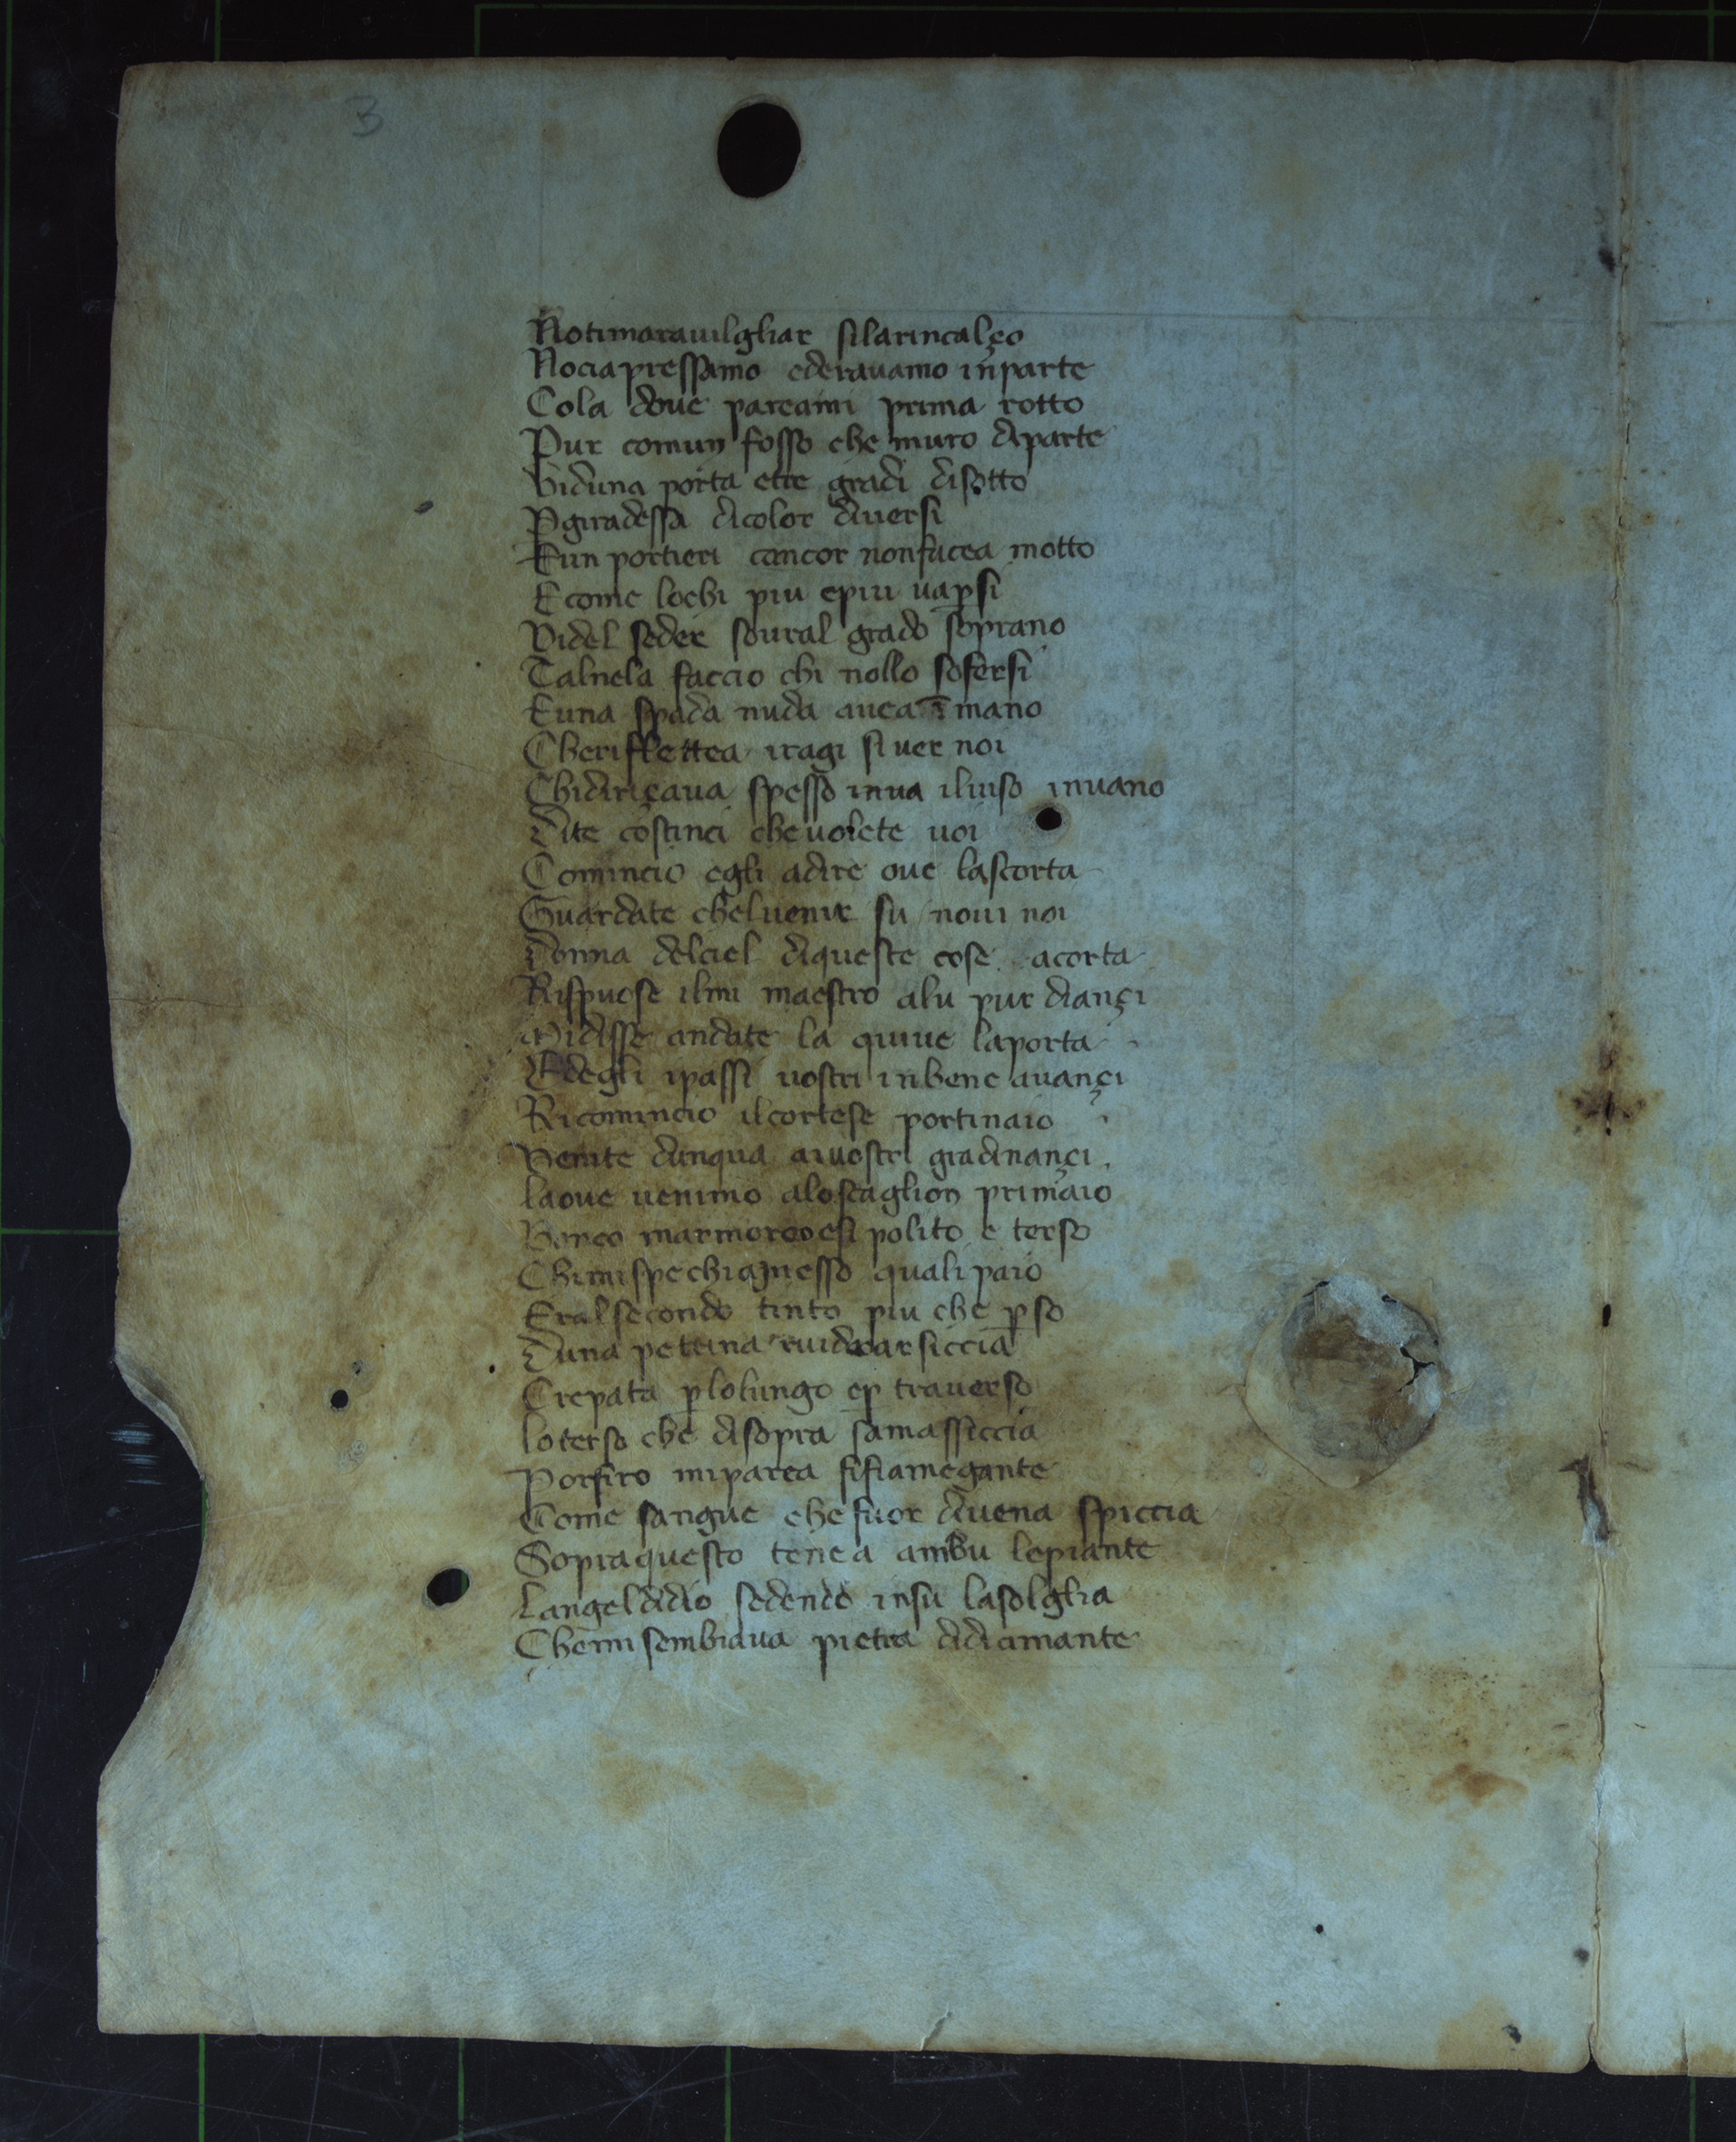 3
Notimarauilgliar silarincalço
Nociapressamo ederauamo inparte
Cola doue pareami prima rotto
Pur comun fosso che muro diparte
Viduna porta etre gradi disotto
Pgiradessa dicolor diuersi
Eun portieri cancor nonfacea motto
E come lochi piu epiu uapsi
Videl seder soural grado soprano
Talnela faccio chi nollo sofersi
Euna spada nuda auea ī mano
Cheriflettea iragi si uer noi
Chidiriçaua spesso inua iluiso inuano
Dite costinci che uolete uoi
Comincio egli adire oue lascorta
Guardate cheluenir su noui noi
Donna delciel diqueste cose acorta
Rispuose ilmi maestro alu pur diançi
Nidisse andate la quiue laporta
Edegli ipassi uostri inbene auançi
Ricomincio ilcortese portinaio
Venite dunqua aiuostri gradinançi
laoue uenimo aloscaglion primaio
Banco marmoreo esi polito e terso
Chimispechiainesso quali paio
Eralsecondo tinto piu che pso
Duna petrina ruidaarsiccia
Crepata plolungo ep trauerso
loterso che disopra samassiccia
Porfiro miparea sifiamegante
Come sangue che fuor diuena spiccia
Sopraquesto tenea ambu lepiante
Langeldidio sedendo insu lasolglia
Chemisembiaua pietra didiamante